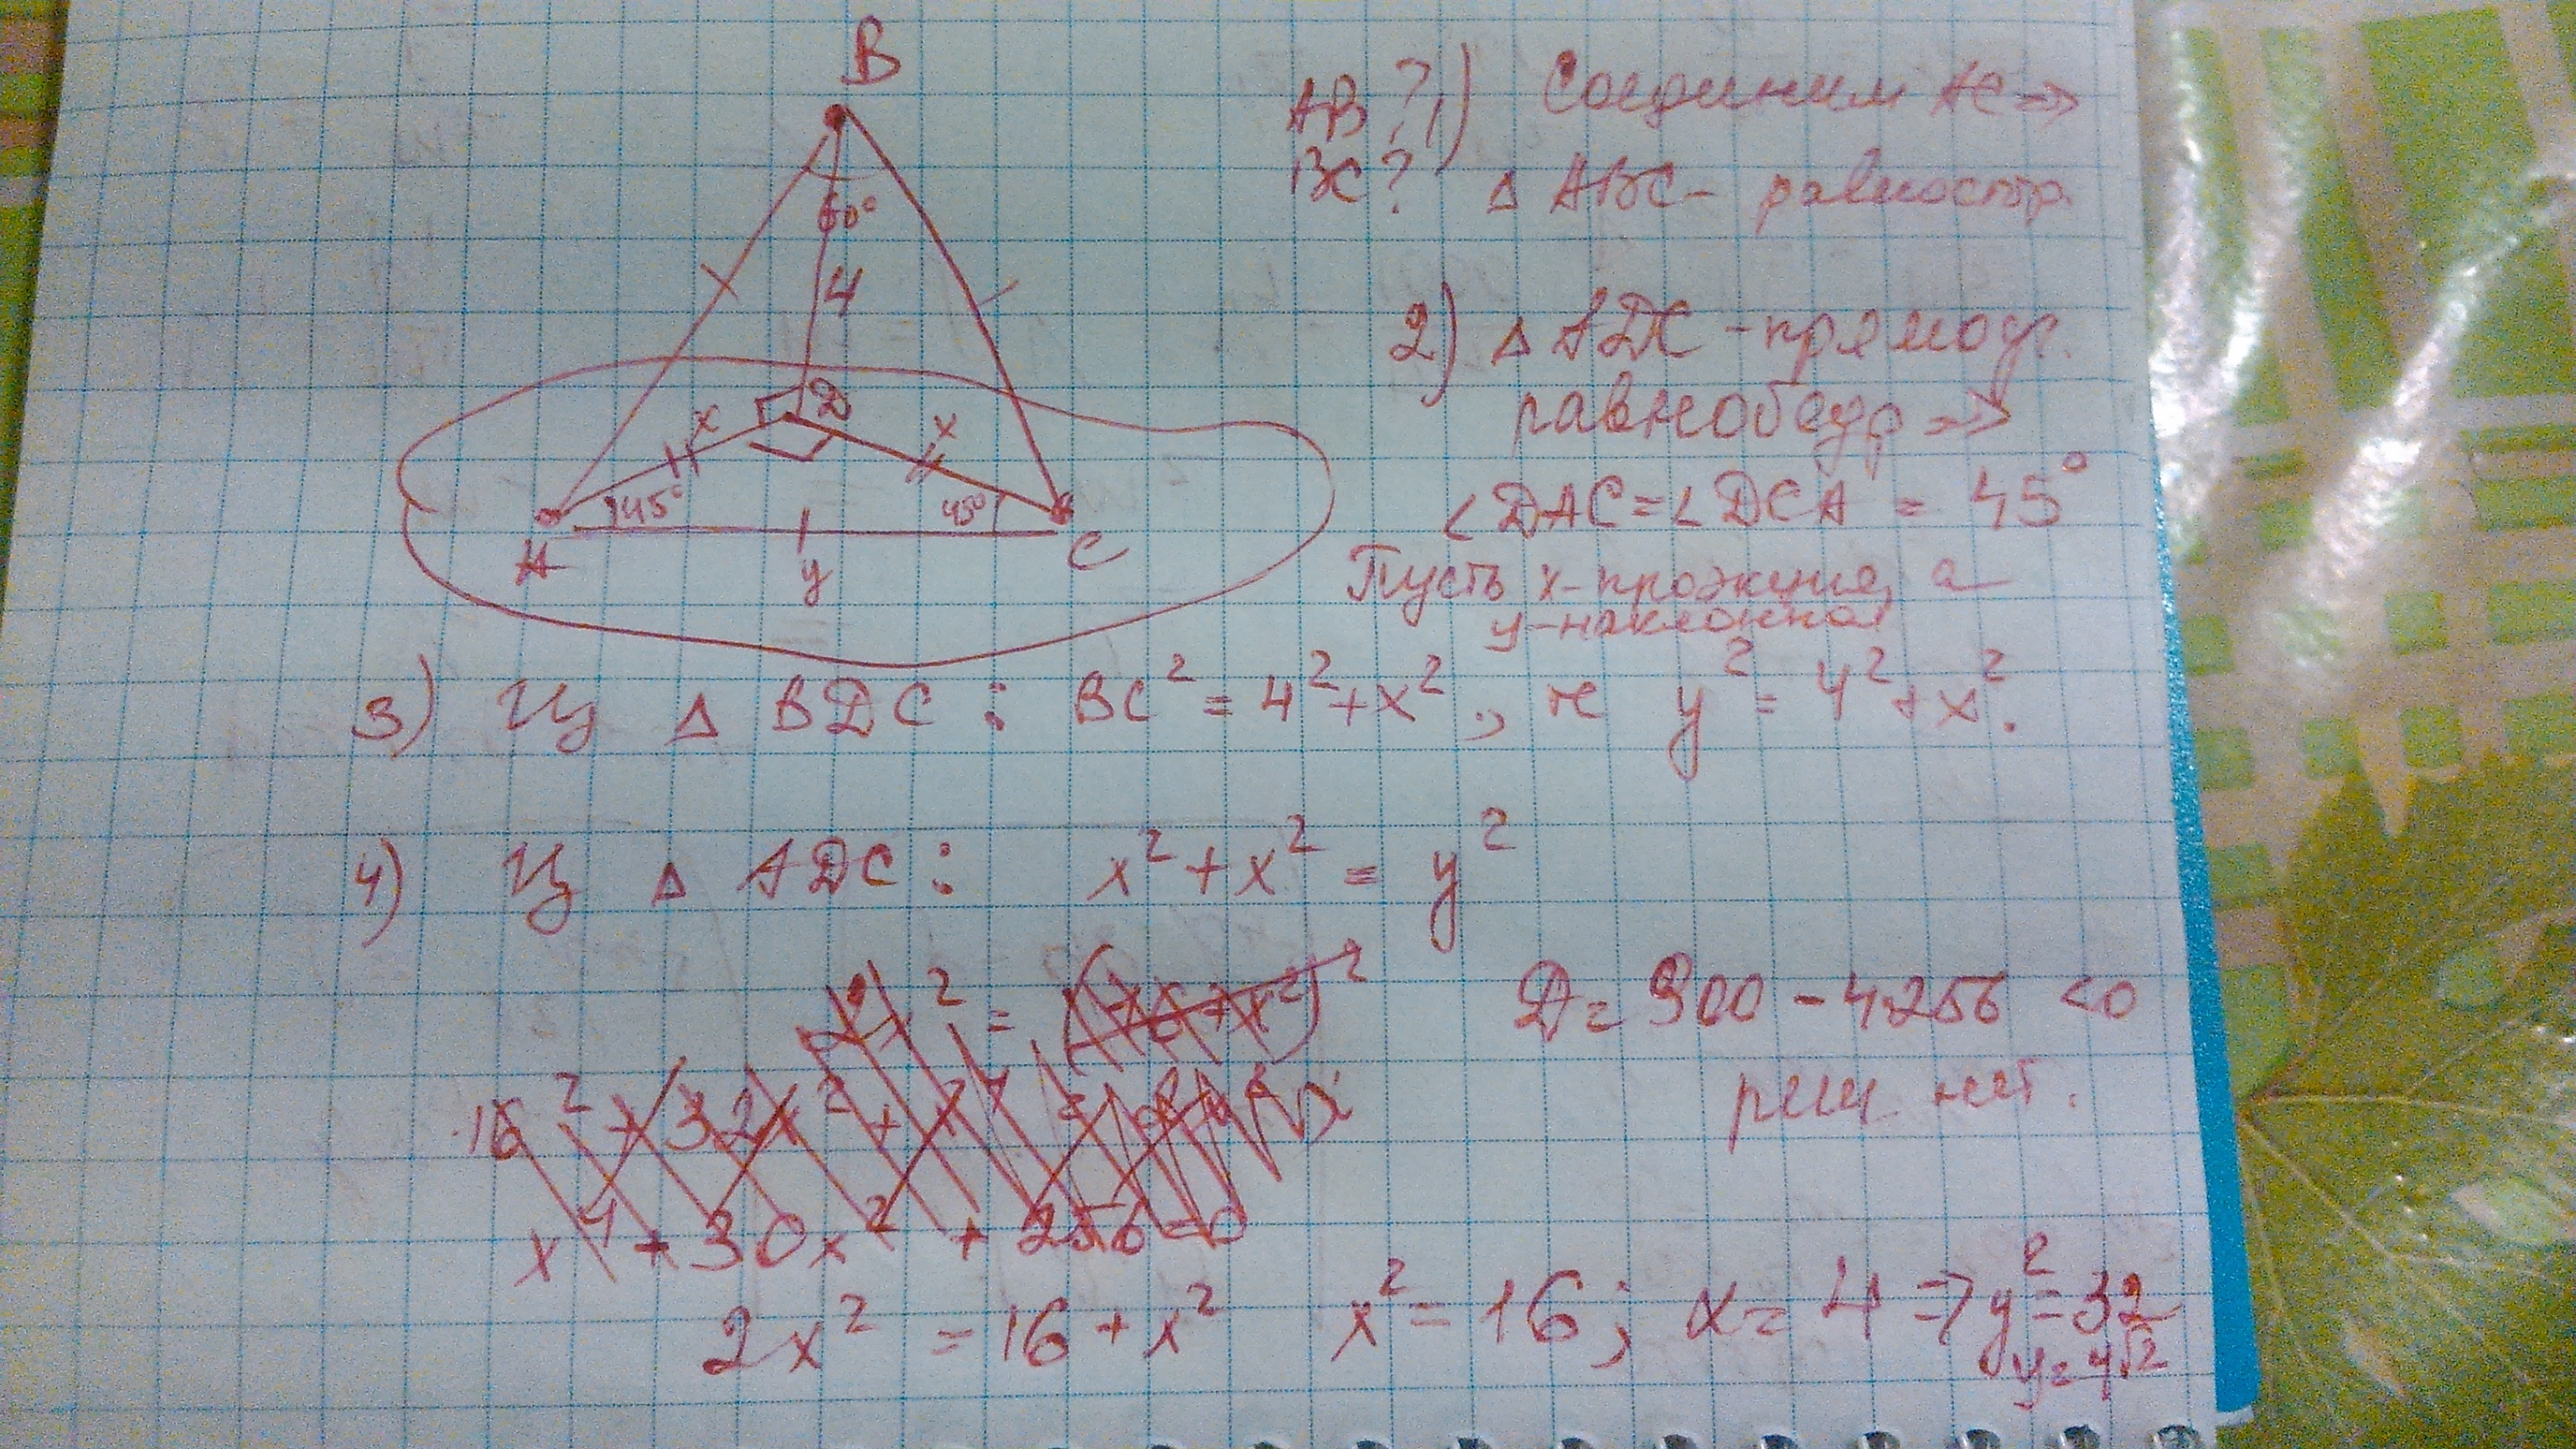 B
60°
4
D
x
x
45°
45°
A
y
C
AB ?
BC ?
1) Соединим AC ⇒
Δ ABC - равностор.
2) Δ ADC - прямоуг.
равнобедр ⇒
∠DAC = ∠DCA = 45°
Пусть x - проекция, а
y - наклонная
3) Из Δ BDC : BC² = 4² + x² , y² = 4² + x².
4) Из Δ ADC : x² + x² = y²
D = 900 - 4·256 < 0
реш. нет.
x⁴ + 30x² + 256 = 0
2x² = 16 + x² x² = 16; x = 4 ⇒ y² = 32
y = 4√2